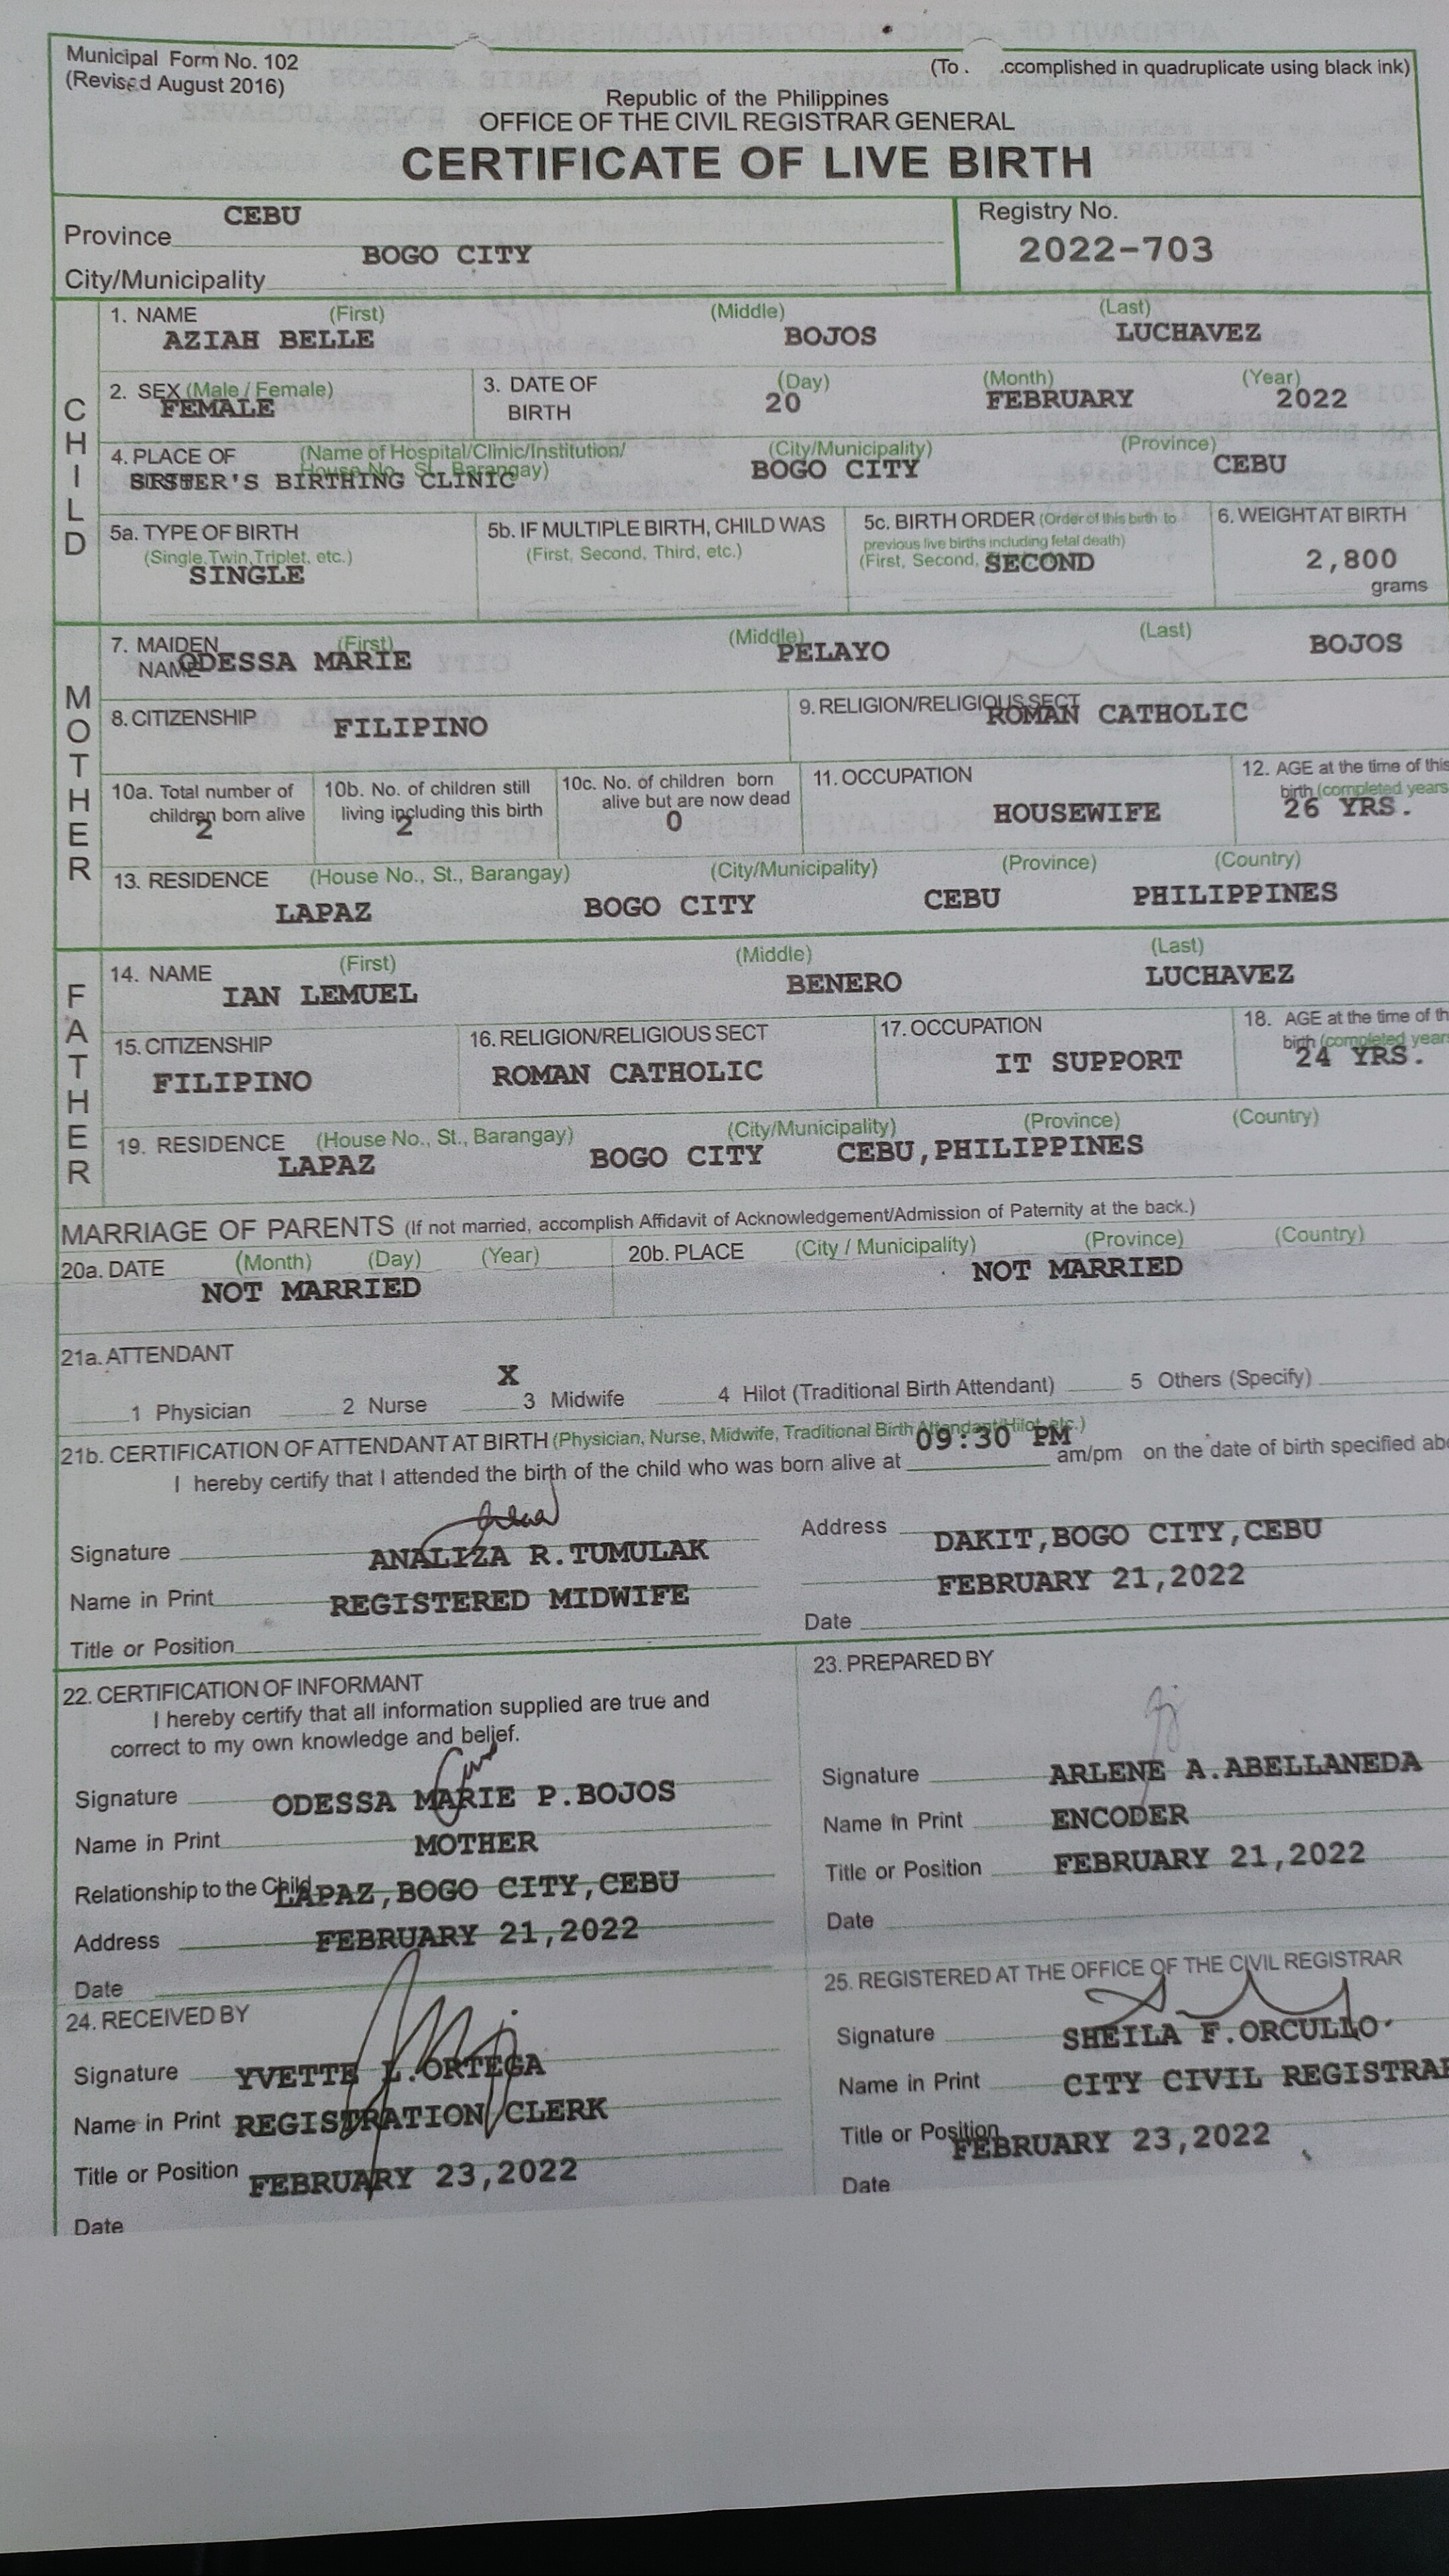 Municipal Form No. 102
(Revised August 2016)
(To . .ccomplished in quadruplicate using black ink)
Republic of the Philippines
OFFICE OF THE CIVIL REGISTRAR GENERAL
CERTIFICATE OF LIVE BIRTH
Province CEBU
City/Municipality BOGO CITY
Registry No.
2022-703
CHILD
1. NAME (First) (Middle) (Last)
AZIAH BELLE BOJOS LUCHAVEZ
2. SEX (Male / Female) 3. DATE OF BIRTH (Day) (Month) (Year)
FEMALE 20 FEBRUARY 2022
4. PLACE OF (Name of Hospital/Clinic/Institution/ (City/Municipality) (Province)
House No., St., Barangay)
SISTER'S BIRTHING CLINIC BOGO CITY CEBU
5a. TYPE OF BIRTH 5b. IF MULTIPLE BIRTH, CHILD WAS 5c. BIRTH ORDER (Order of this birth to 6. WEIGHT AT BIRTH
(Single,Twin,Triplet, etc.) (First, Second, Third, etc.) previous live births including fetal death)
(First, Second,
SINGLE SECOND 2,800
grams
MOTHER
7. MAIDEN NAME (First) (Middle) (Last)
ODESSA MARIE PELAYO BOJOS
8. CITIZENSHIP 9. RELIGION/RELIGIOUS SECT
FILIPINO ROMAN CATHOLIC
10a. Total number of children born alive 10b. No. of children still living including this birth 10c. No. of children born alive but are now dead 11. OCCUPATION 12. AGE at the time of this birth (completed years
2 2 0 HOUSEWIFE 26 YRS.
13. RESIDENCE (House No., St., Barangay) (City/Municipality) (Province) (Country)
LAPAZ BOGO CITY CEBU PHILIPPINES
FATHER
14. NAME (First) (Middle) (Last)
IAN LEMUEL BENERO LUCHAVEZ
15. CITIZENSHIP 16. RELIGION/RELIGIOUS SECT 17. OCCUPATION 18. AGE at the time of th
birth (completed years
FILIPINO ROMAN CATHOLIC IT SUPPORT 24 YRS.
19. RESIDENCE (House No., St., Barangay) (City/Municipality) (Province) (Country)
LAPAZ BOGO CITY CEBU,PHILIPPINES
MARRIAGE OF PARENTS (If not married, accomplish Affidavit of Acknowledgement/Admission of Paternity at the back.)
20a. DATE (Month) (Day) (Year) 20b. PLACE (City / Municipality) (Province) (Country)
NOT MARRIED NOT MARRIED
21a. ATTENDANT
X
1 Physician 2 Nurse 3 Midwife 4 Hilot (Traditional Birth Attendant) 5 Others (Specify)
21b. CERTIFICATION OF ATTENDANT AT BIRTH (Physician, Nurse, Midwife, Traditional Birth Attendant/Hilot, etc.)
I hereby certify that I attended the birth of the child who was born alive at 09:30 PM am/pm on the date of birth specified abo
Signature Address
ANALIZA R.TUMULAK DAKIT,BOGO CITY,CEBU
Name in Print REGISTERED MIDWIFE FEBRUARY 21,2022
Title or Position Date
22. CERTIFICATION OF INFORMANT
I hereby certify that all information supplied are true and
correct to my own knowledge and belief.
Signature ODESSA MARIE P.BOJOS
Name in Print MOTHER
Relationship to the Child LAPAZ,BOGO CITY,CEBU
Address FEBRUARY 21,2022
Date
23. PREPARED BY
Signature ARLENE A.ABELLANEDA
Name in Print ENCODER
Title or Position FEBRUARY 21,2022
Date
24. RECEIVED BY
Signature YVETTE L.ORTEGA
Name in Print REGISTRATION CLERK
Title or Position FEBRUARY 23,2022
Date
25. REGISTERED AT THE OFFICE OF THE CIVIL REGISTRAR
Signature SHEILA F.ORCULLO
Name in Print CITY CIVIL REGISTRAR
Title or Position FEBRUARY 23,2022
Date